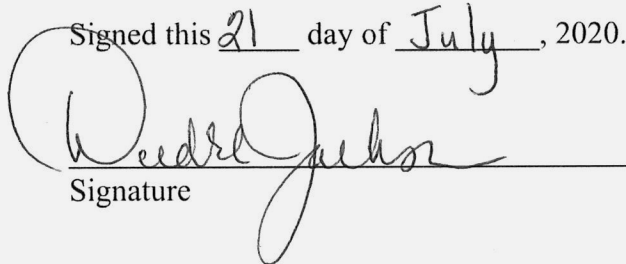 Signed this 21 day of July, 2020.
Deidre Jackson
Signature